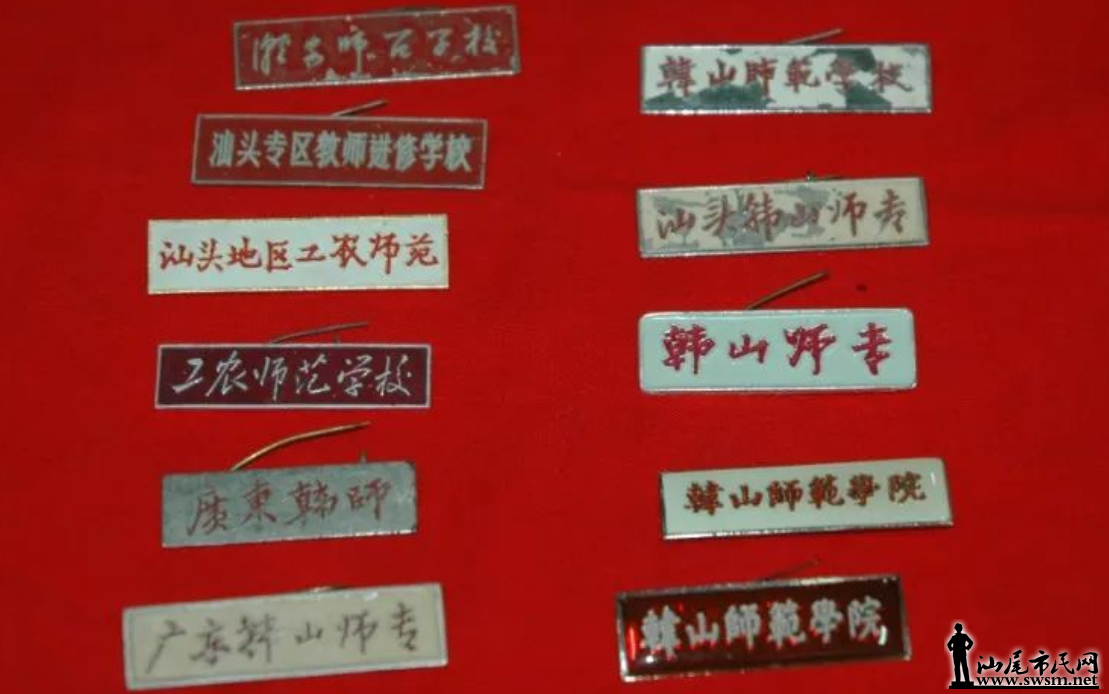 潮安师范学校
汕头专区教师进修学校
汕头地区工农师范
工农师范学校
廣東韩師
广东韩山师专
韓山師範学校
汕头韩山师专
韩山师专
韓山師範學院
韓山師範學院
汕尾市民网
www.swsm.net